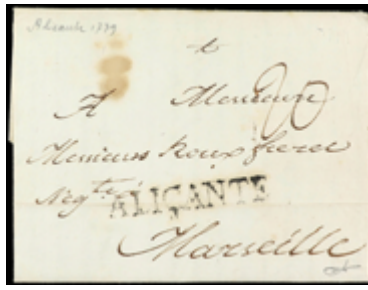 Alicante 1779
A Monsieur
20
Messieurs Roux freres
Neg.ts
ALICANTE
Marseille